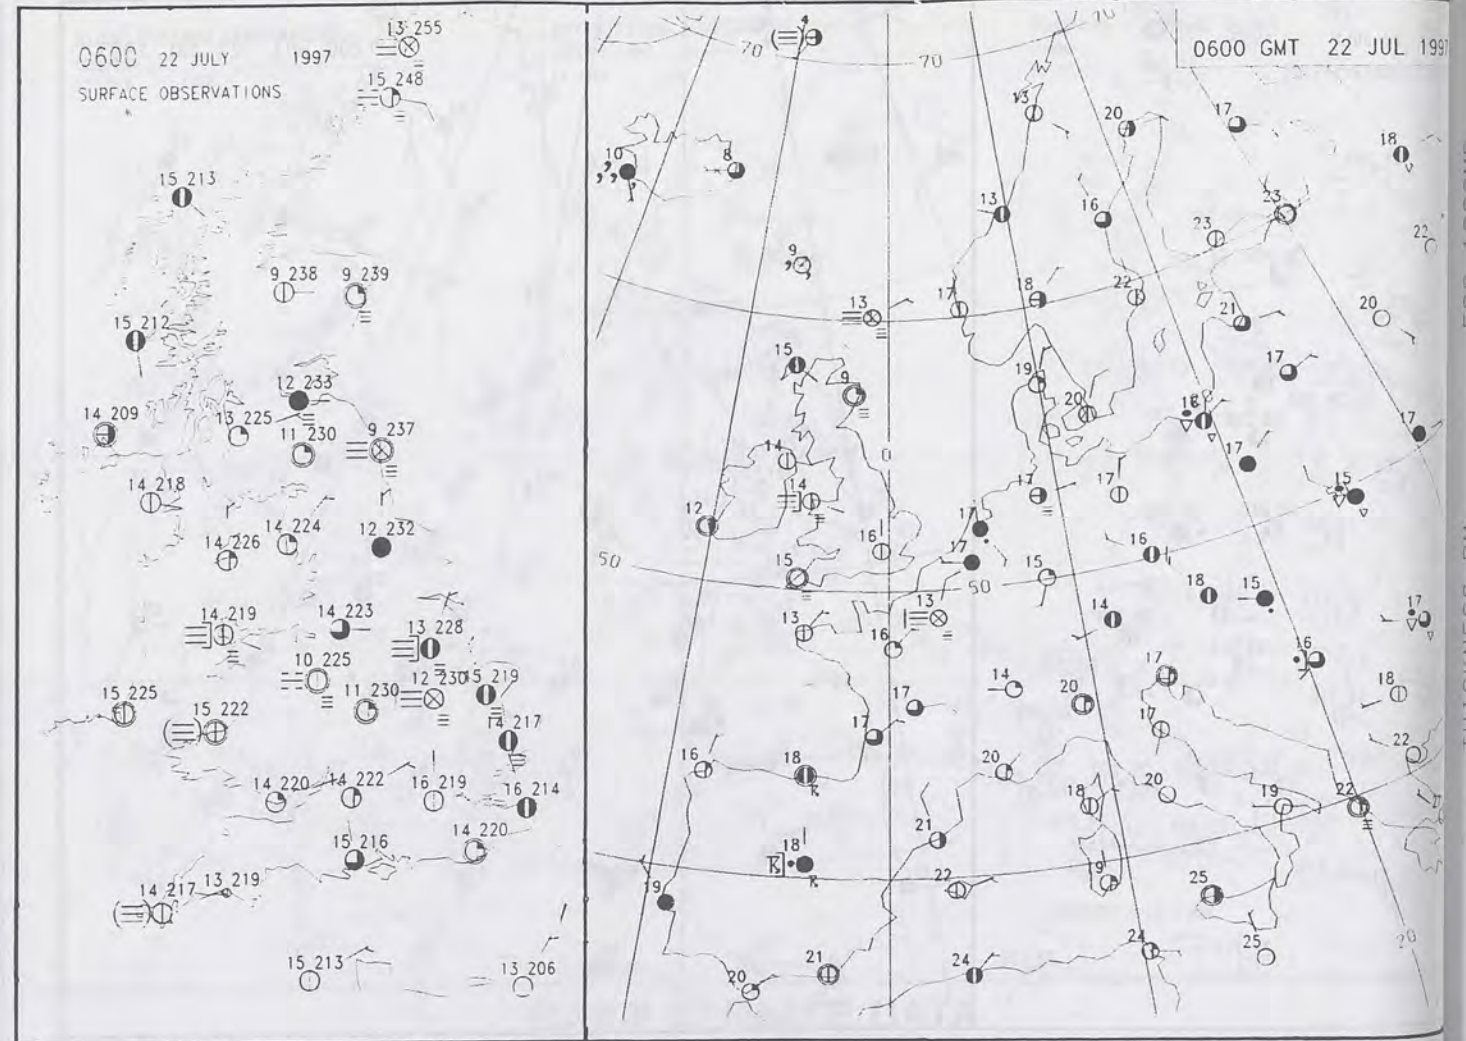 13 255
0600 22 JULY 1997
SURFACE OBSERVATIONS
15 248
15 213
9 238
9 239
15 212
12 233
14 209
13 225
11 230
9 237
14 218
14 224
14 226
12 232
14 219
14 223
13 228
10 225
11 230
12 230
15 219
15 225
15 222
14 217
14 220
14 222
16 219
16 214
15 216
14 220
14 217
13 219
15 213
13 206
0600 GMT 22 JUL 1997
4
70
70
70
13
20
17
18
10
8
13
16
23
23
22
9
13
17
18
22
21
20
15
9
19
20
17
14
0
17
17
14
17
17
15
12
16
17
17
16
50
15
15
50
18
15
14
13
13
16
17
16
17
14
20
18
17
17
22
16
18
20
20
18
19
22
21
18
22
19
25
19
24
25
20
21
24
20